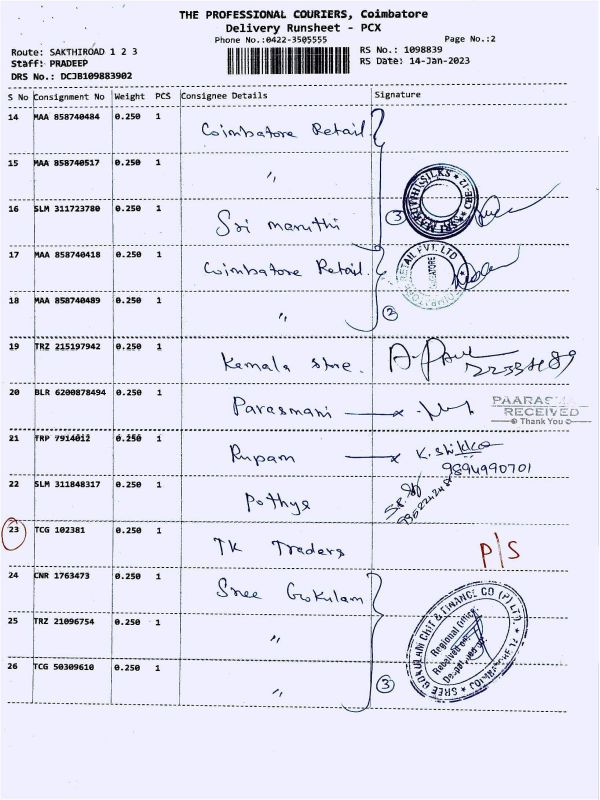 THE PROFESSIONAL COURIERS, Coimbatore
Delivery Runsheet - PCX
Phone No.:0422-3505555
Page No.:2
Route: SAKTHIROAD 1 2 3
RS No.: 1098839
Staff: PRADEEP
RS Date: 14-Jan-2023
DRS No.: DCJB109883902
S No Consignment No Weight PCS Consignee Details Signature
14 MAA 858740484 0.250 1 Coimbatore Retail
15 MAA 858740517 0.250 1 〃
16 SLM 311723780 0.250 1 Sri maruthi
③
SRI MARUTHI SILKS ★ CBE-12 ★
17 MAA 858740418 0.250 1 Coimbatore Retail
COIMBATORE RETAIL PVT. LTD
18 MAA 858740489 0.250 1 〃
②
19 TRZ 215197942 0.250 1 Kamala store.
20 BLR 6200878494 0.250 1 Parasmani
RECEIVED
Thank You
21 TRP 7914012 0.250 1 Rupam
9894990701
22 SLM 311848317 0.250 1 Pothys
23 TCG 102381 0.250 1 TK Traders P/S
24 CNR 1763473 0.250 1 Sree Gokulam
25 TRZ 21096754 0.250 1 〃
26 TCG 50309610 0.250 1 〃
③
SREE GOKULAM CHIT & FINANCE CO (P) LTD.
Regional Office
Received on